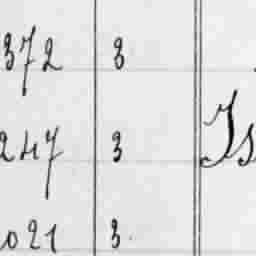 372 3
247 3 Is
021 3.